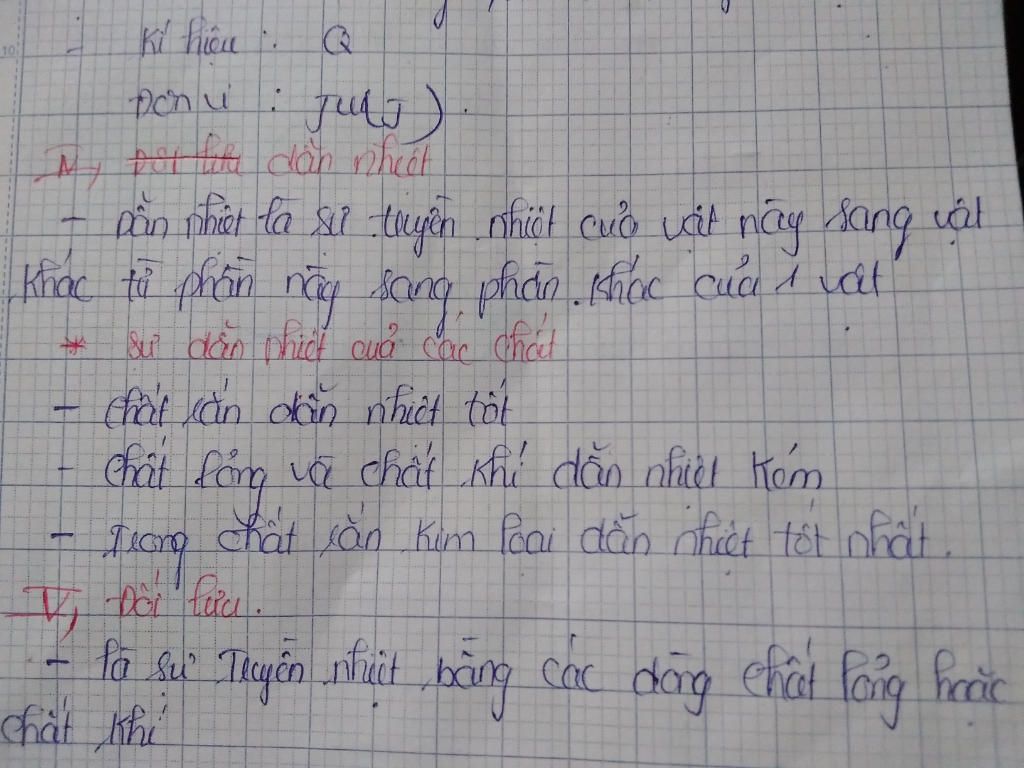 - Kí hiệu : Q
Đơn vị : Jun(J).
IV, Đối lưu dẫn nhiệt
- Dẫn nhiệt là sự truyền nhiệt của vật này sang vật
khác từ phần này sang phần khác của 1 vật
* sự dẫn nhiệt của các chất
- chất rắn dẫn nhiệt tốt
- chất lỏng và chất khí dẫn nhiệt kém
- Trong chất rắn kim loại dẫn nhiệt tốt nhất.
V, Đối lưu.
- là sự Truyền nhiệt bằng các dòng chất lỏng hoặc
chất khí